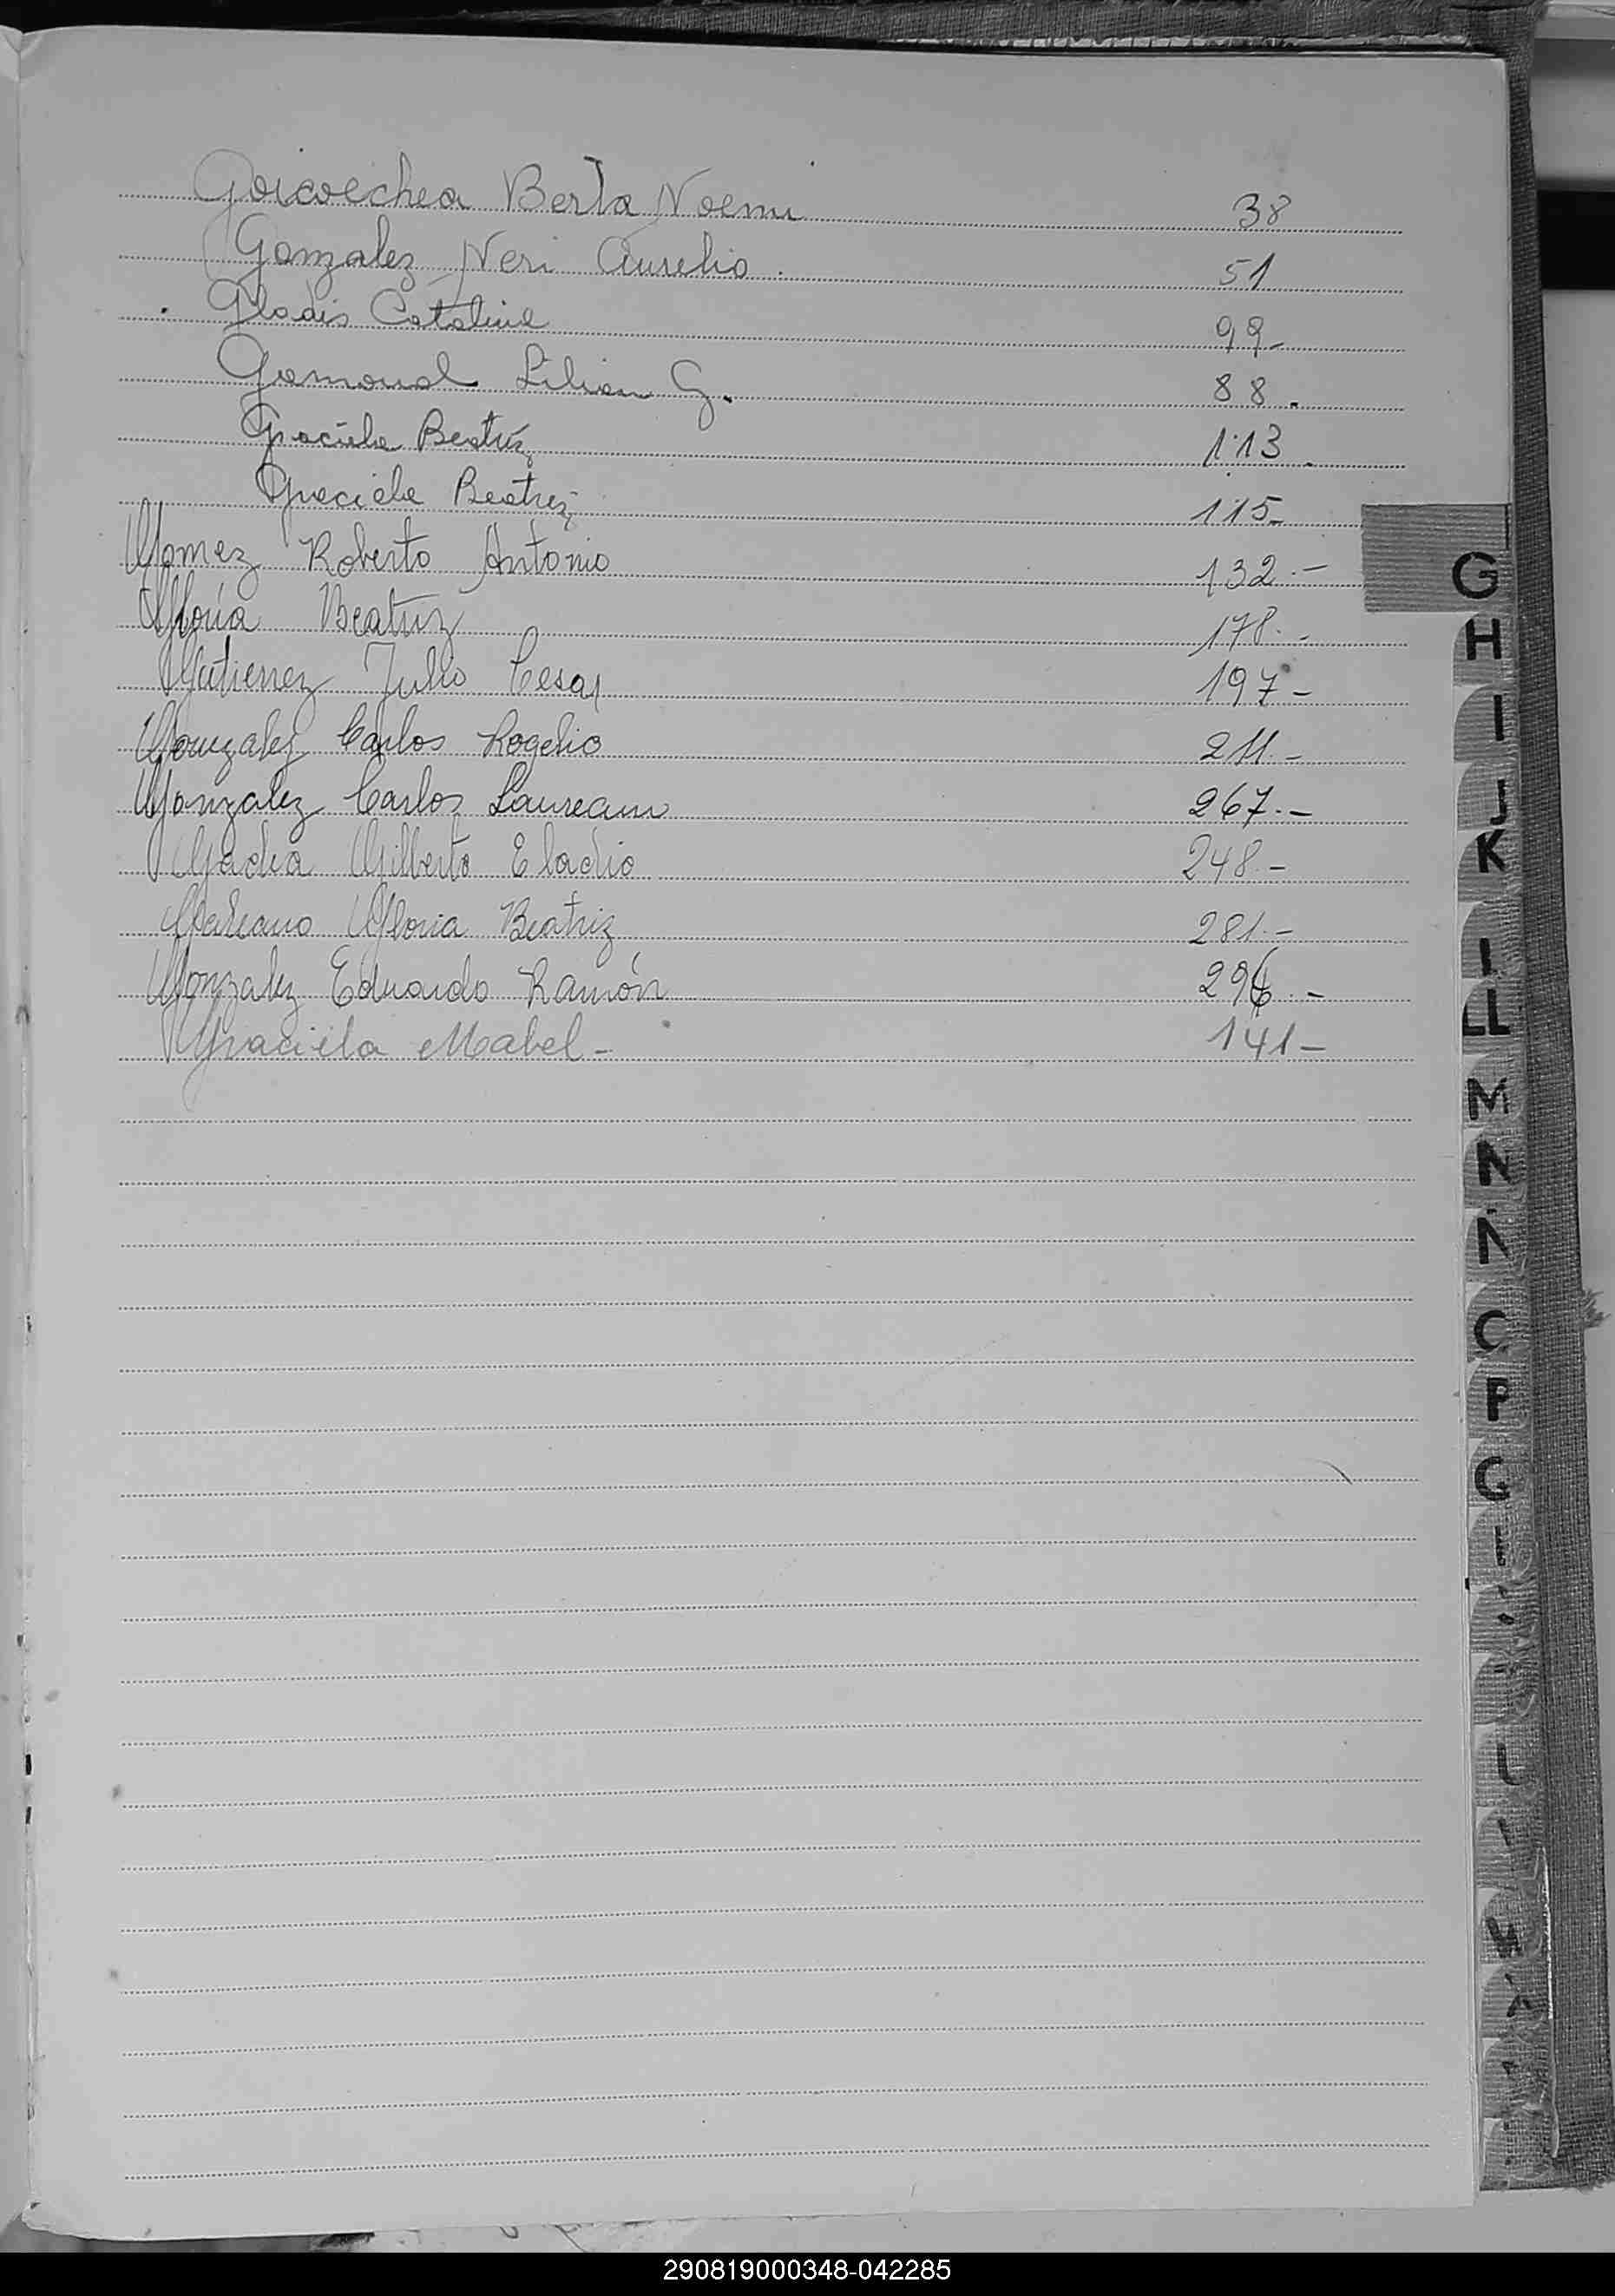 Goicoechea Berta Noemi 38
Gonzalez Neri Aurelio. 51
Gladis Catalina 99-
Gamoual Lilian G. 88.
Graciela Beatriz 113.
Graciela Beatriz 115-
Gomez Roberto Antonio 132.-
Gloria Beatriz 178.-
Gutierrez Julio Cesar 197-
Gonzalez Carlos Rogelio 211.-
Gonzalez Carlos Laureano 267.-
Gadea Gilberto Eladio 248.-
Galeano Gloria Beatriz 281.-
Gonzalez Eduardo Ramón 296.-
Graciela Mabel- 141-
G
H
I
J
K
L
LL
M
N
Ñ
O
P
Q
290819000348-042285